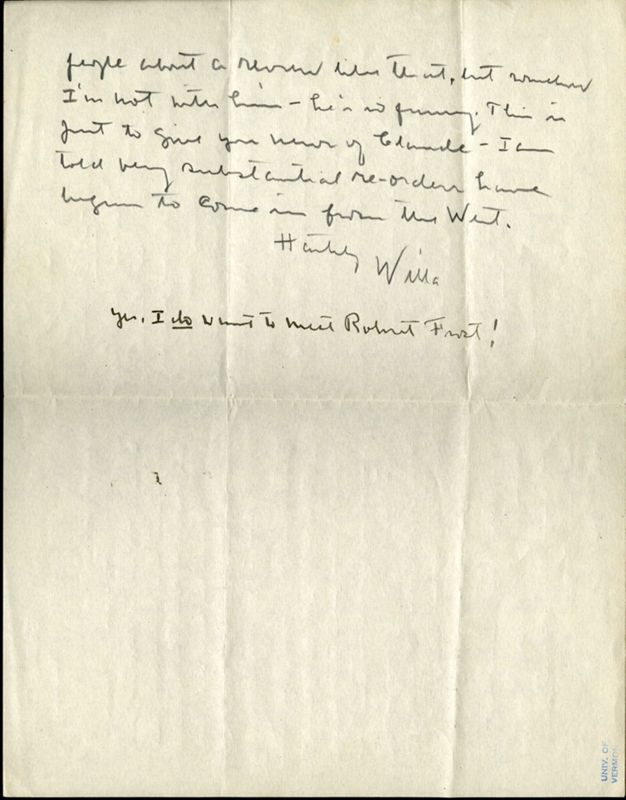 people about a review like that, but somehow
I'm not with him - he's so funny. This is
just to give you news of Claude - I am
told very substantial re-orders have
begun to come in from the West.
Hastily
Willa
Yes, I do want to meet Robert Frost!
UNIV. OF
VERMONT